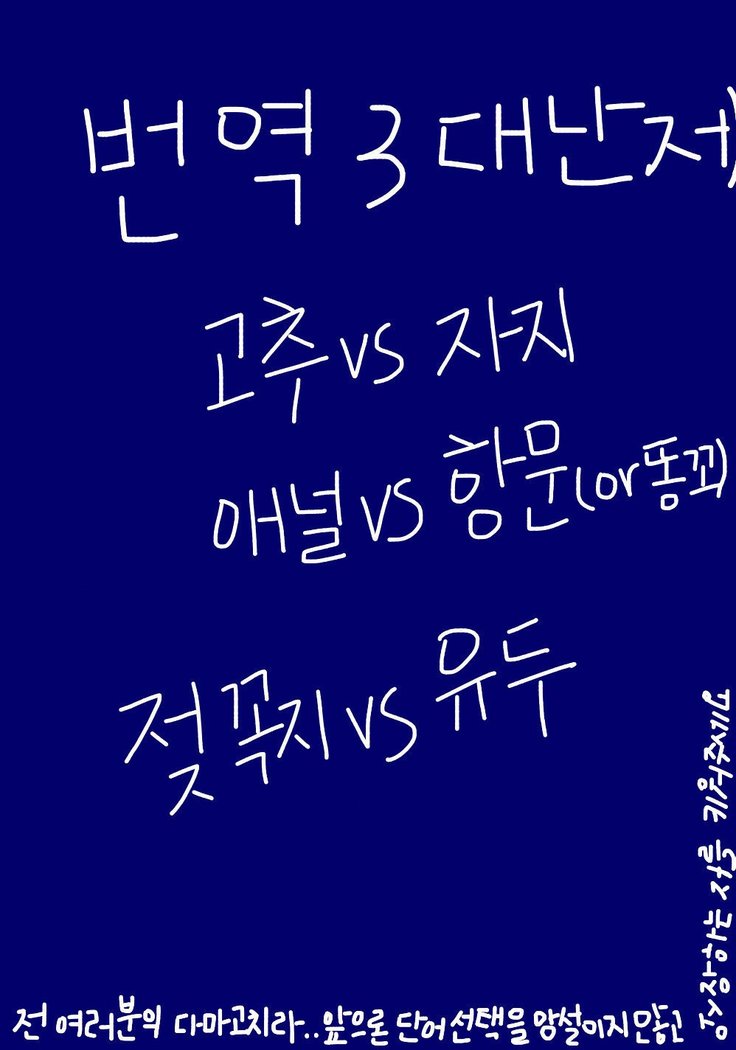 번역 3대난제
고추 vs 자지
애널 vs 항문(or 똥꼬)
젖꼭지 vs 유두
전 여러분의 다마고치라..앞으론 단어선택을 망설이지 않고
성장하는 저를 키워주세요